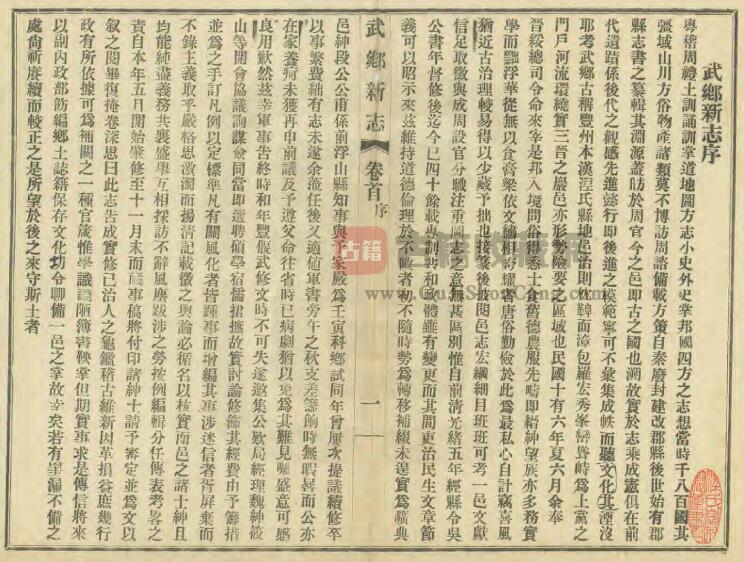 武鄉新志序
粵稽周禮土訓誦訓掌道地圖方志小史外史掌邦國四方之志想當時千八百國其
疆域山川方俗物產諸類莫不博訪周諮備載方策自秦廢封建改郡縣後世始有郡
縣志書之纂輯其淵源蓋昉於周官今之邑即古之國也溯故實於志乘成憲俱在前
代遺蹟係後代之觀感先進懿行即後進之模範寧可不彙集成帙而聽文化其湮沒
耶考武鄉古稱豐州本漢涅氏縣地邑治則枕鞞面漳包羅宏秀峯巒聳峙為上黨之
門戶河流環繞實三晉之巖邑亦形勢險要之區域也民國十有六年夏六月余奉
晉綏總司令命來宰是邦入境問俗得悉士食舊德農服先疇即縉紳望族亦多務實
學而黜浮華從無以食膏粱依文繡相誇耀者唐俗勤儉於此為最私心自計竊喜風
猶近古治理較易得以少藏予拙也接篆後披閱邑志宏綱細目班班可考一邑文獻
信足取徵與成周設官分職注重圖志之意無甚區別惟自前清光緒五年經縣令吳
公書年督修後迄今已四十餘載專制共和國體雖有變更而其間吏治民生文章節
義可以昭示來茲維持道德倫理於不敝者初不隨時勢為轉移補綴未遑實為曠典
武鄉新志 卷首 序 一
邑紳段公公甫係前浮山縣知事與予家嚴為壬寅科鄉試同年曾屢次提議續修卒
以事繁費絀有志未遂余涖任後又適値軍書旁午之秋支差籌餉時無暇晷而公亦
在家養疴未獲再申前議及予遵父命往省時已病劇猶以克為其難見囑盛意可感
良用歉然茲幸軍事告終時和年豐偃武修文時不可失遂邀集公欵局經理魏紳
山等開會協議詢謀僉同當即選聘碩學宿儒捃摭故實討論修飾其經費由予籌措
並為之手訂凡例以定標準凡有關風化者皆踵事而增編其事涉迷信者胥屏棄而
不錄主義取乎嚴格思激濁而揚清記載徵之輿論必循名以核實而邑之諸士紳且
均能純盡義務共襄盛舉互相採訪不辭風塵跋涉之勞按例編輯分任傳表考畧之
責自本年五月開始肇修至十一月末而蕆事稿將付印諸紳士請予審定並為文以
叙之閱畢復掩卷深思曰此志告成實修已治人之龜鑑稽古維新因革損益庶幾行
政有所依據可為補闕之一種官箴惟學識譾陋簿書鞅掌但期實事求是傳信將來
以副內政部飭編鄉土誌籍保存文化功令聊備一邑之掌故幸矣若有罣漏不備之
處尙祈賡續而較正之是所望於後之來守斯土者
古籍收藏网
www.GuJiShouCang.com